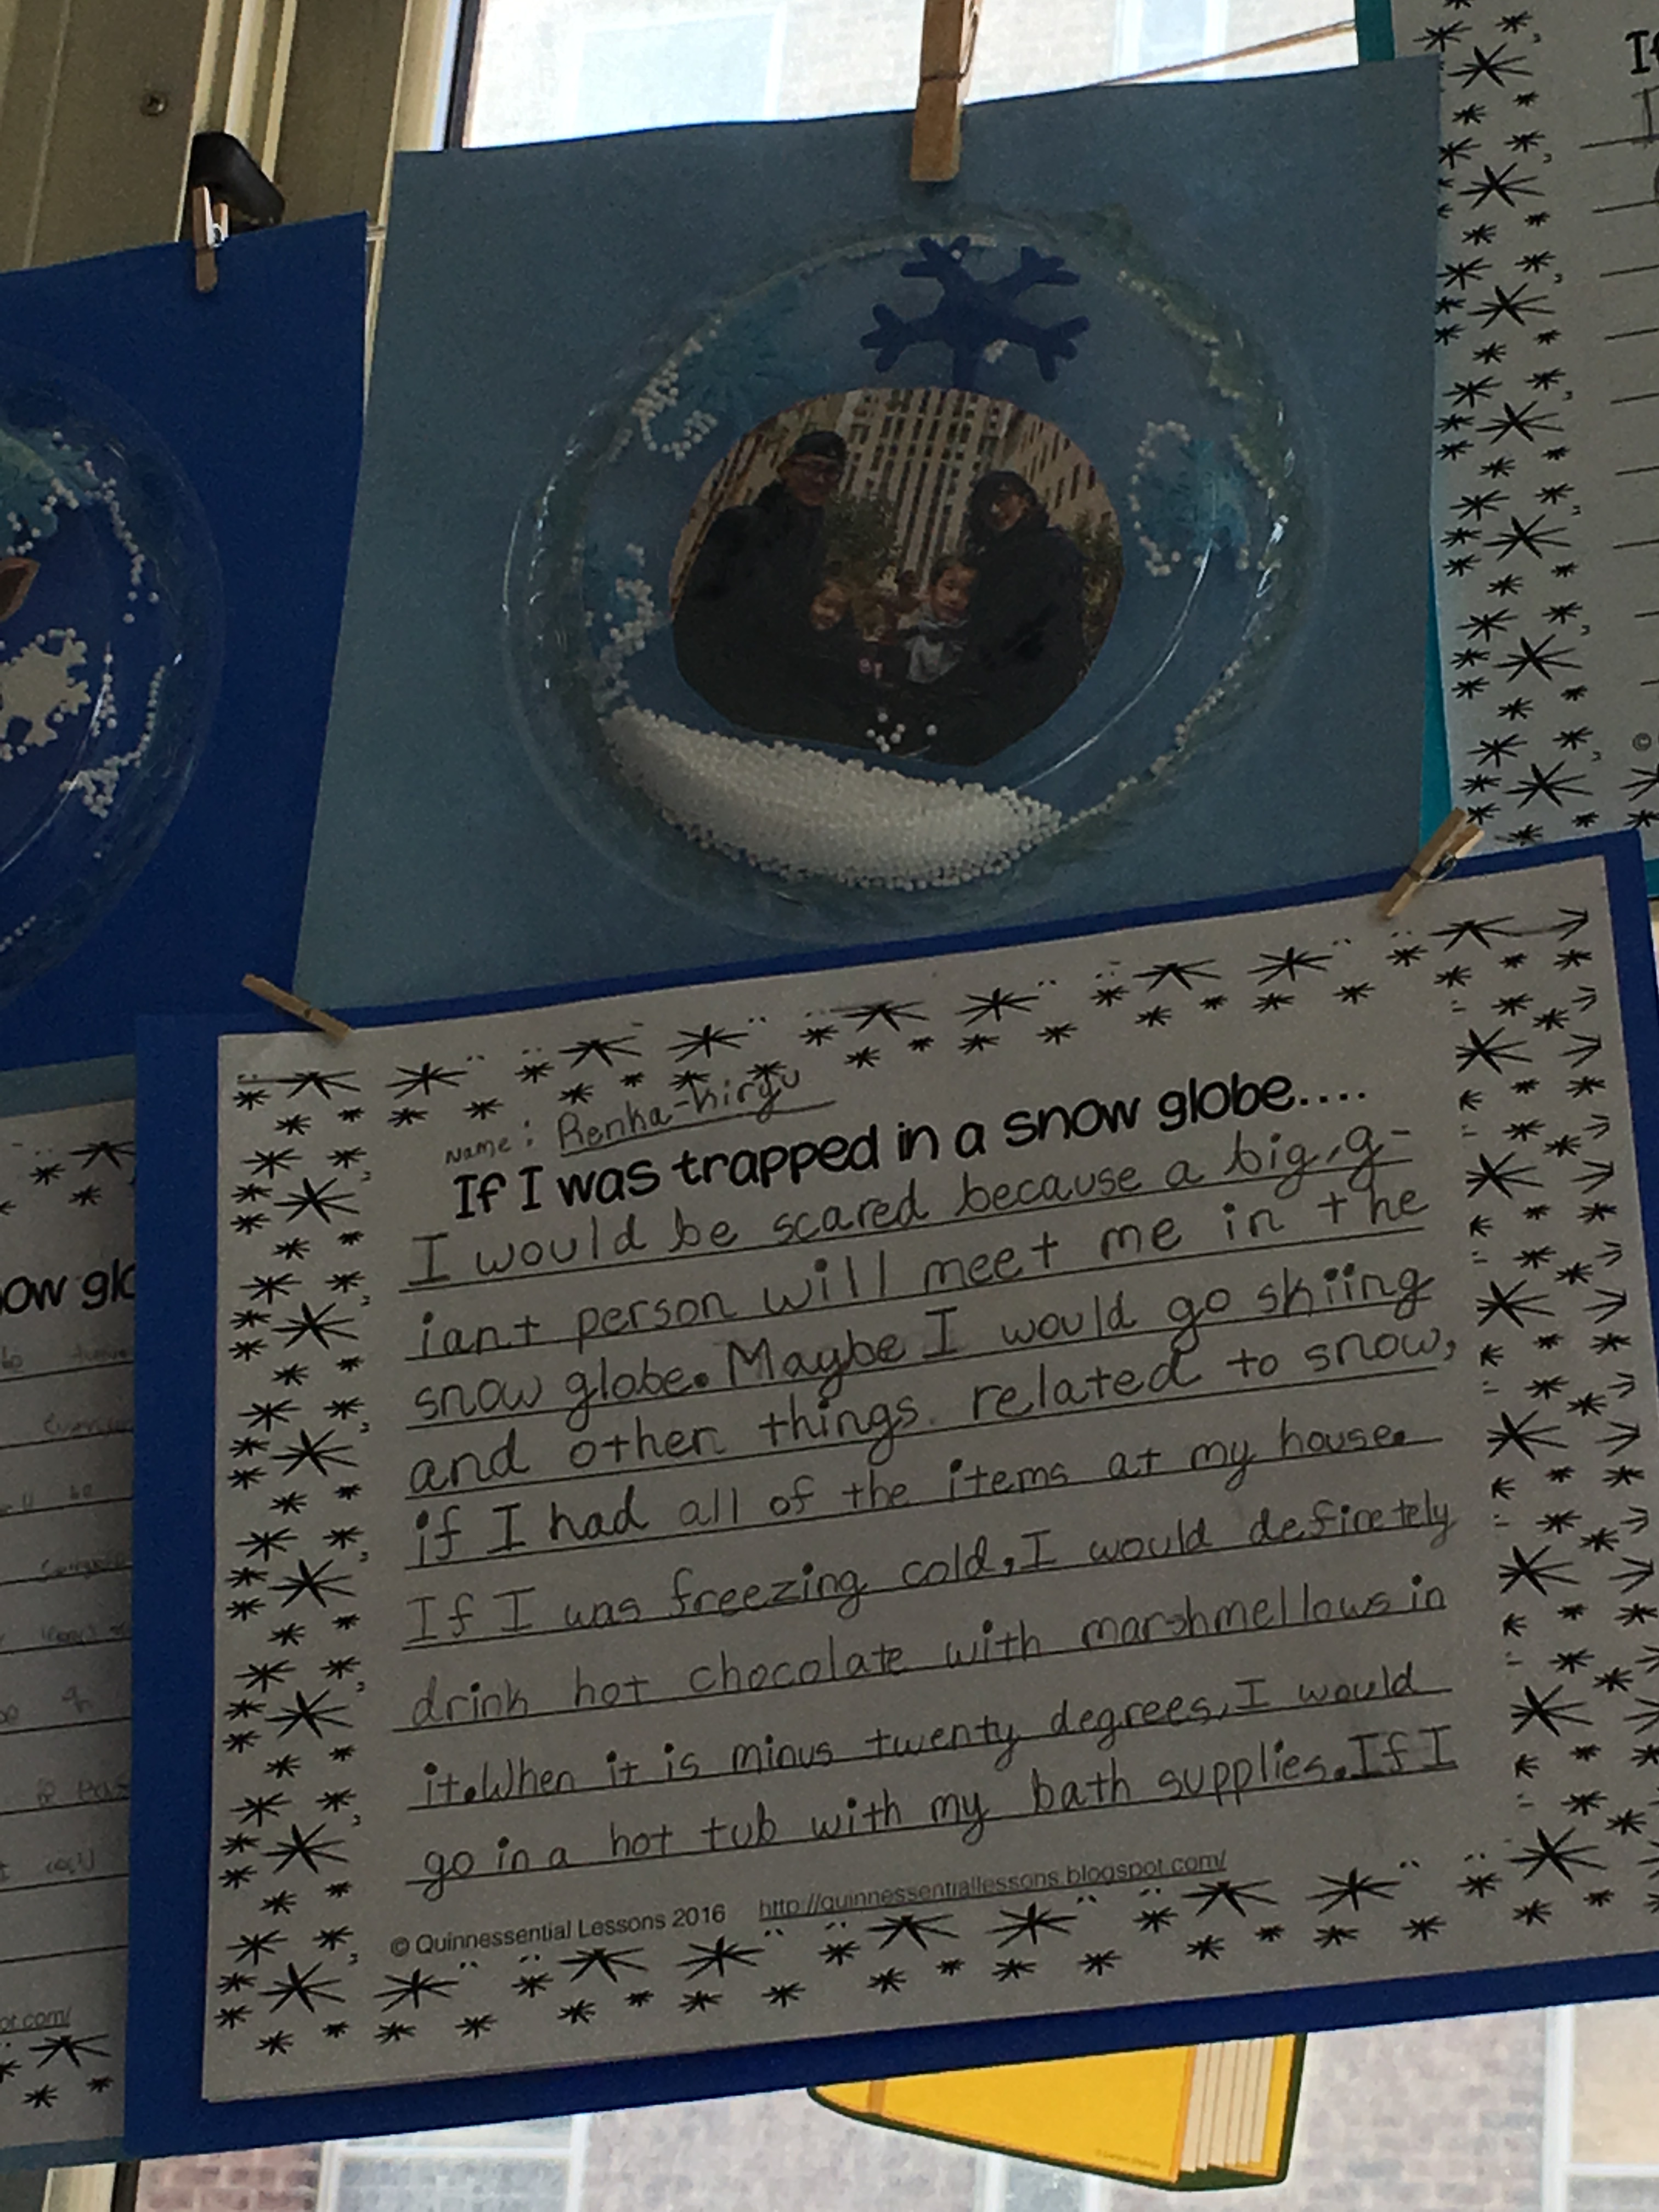 Name: Renka-Kiryu
If I was trapped in a snow globe....
I would be scared because a big, g-
iant person will meet me in the
snow globe. Maybe I would go skiing
and other things related to snow,
if I had all of the items at my house.
If I was freezing cold, I would definetely
drink hot chocolate with marshmellows in
it. When it is minus twenty degrees, I would
go in a hot tub with my bath supplies. If I
© Quinnessential Lessons 2016 http://quinnessentiallessons.blogspot.com/
ow glo
ot.com/
If
I
©